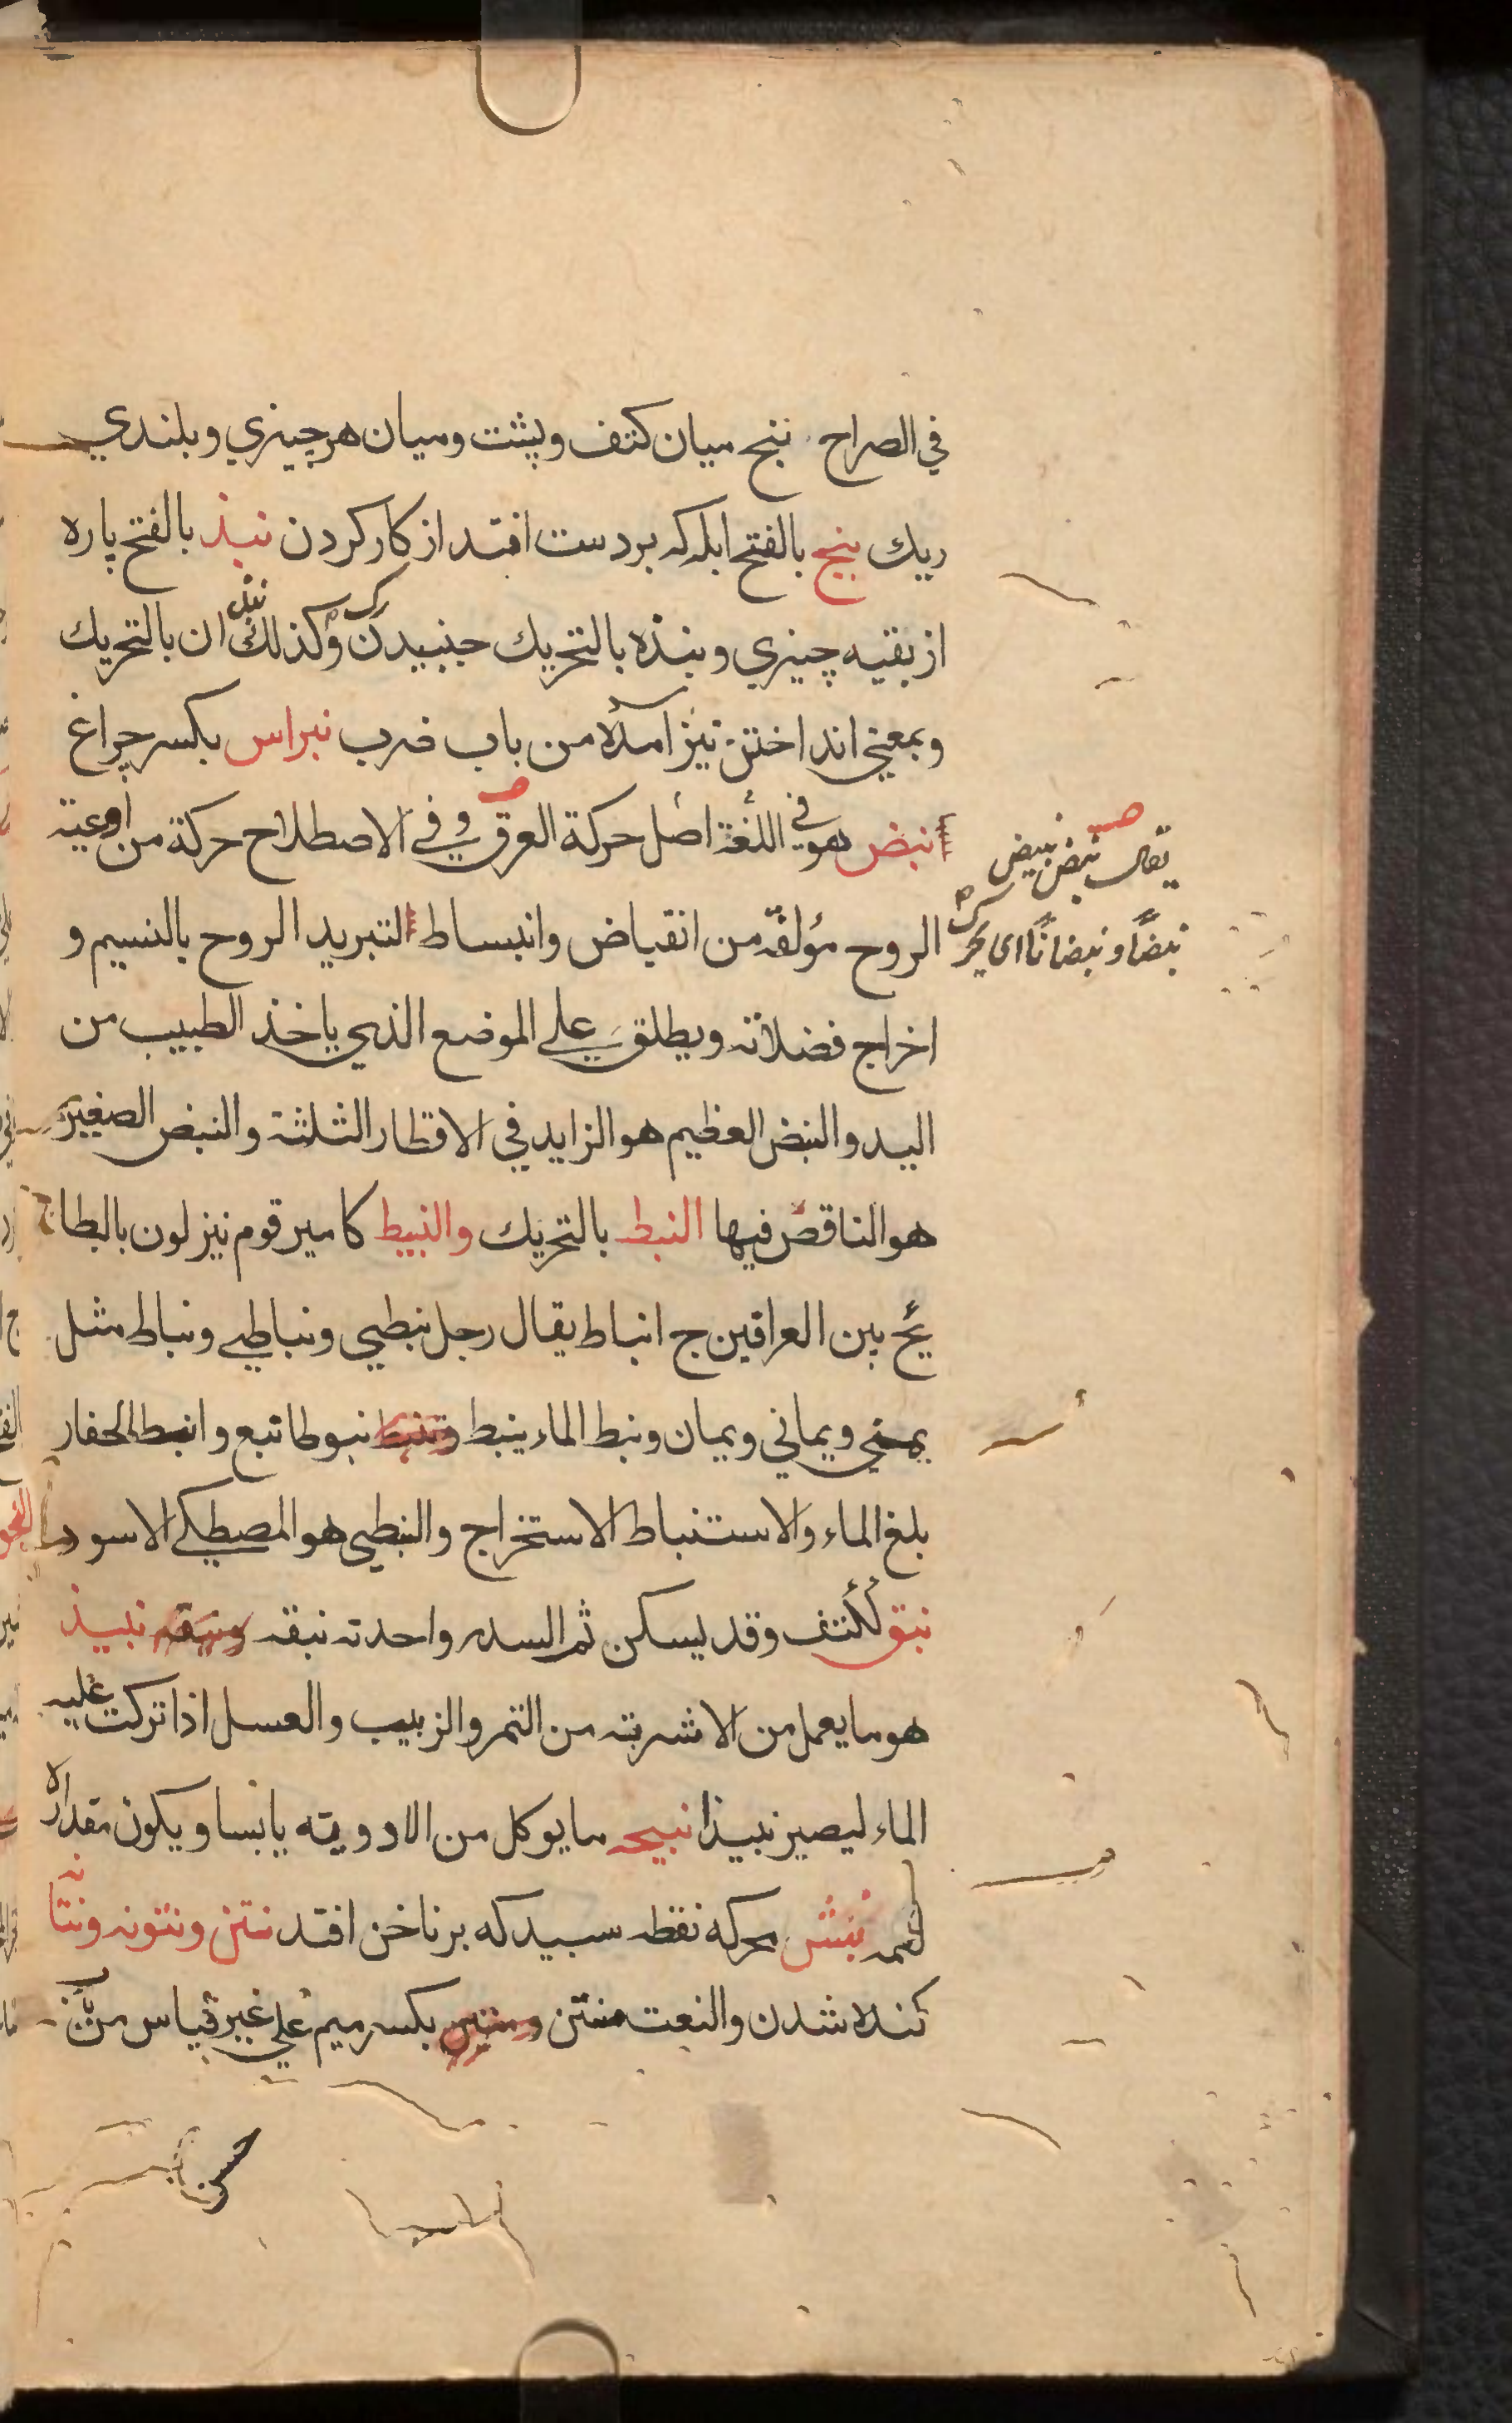 في الصراح ثبج ميان كتف وپشت وميان هر چيزي وبلندي
ريك نبج بالفتح ابله كه بر دست افتد از كار كردن نبذ بالفتح پاره
از بقيه چيزي ونبذه بالتحريك جنبيدن رك وكذلك نبذ ان بالتحريك
وبمعني انداختن نيز آمده من باب ضرب نبراس بكسر چراغ
نبض هو في اللغة اصل حركة العرق وفي الاصطلاح حركة من اوعية
يقال نبض ينبض
نبضًا ونبضانًا اى تحرك
الروح مؤلفة من انقباض وانبساط لتبريد الروح بالنسيم و
اخراج فضلاته ويطلق علي الموضع الذي ياخذ الطبيب من
اليد والنبض العظيم هو الزايد في الاقطار الثلثة والنبض الصغير
هو الناقص فيها النبط بالتحريك والنبيط كامير قوم نيزلون بالبطا
ئح بين العراقين ج انباط يقال رجل نبطي ونباطي ونباط مثل
يمني ويماني ويمان ونبط الماء ينبط وتنبط نبوطا تبع وانبط الحفار
بلغ الماء والاستنباط الاستخراج والنبطي هو المصطكي الاسود
نبق ككتف وقد يسكن ثم السدر واحدته نبقه ونبقه نبيذ
هو ما يعمل من الاشربته من التمر والزبيب والعسل اذا تركت عليه
الماء ليصير نبيذا نبيجه ما يوكل من الادويته يابسا ويكون مقداره
لقمه نبش محركه نقطه سبيد كه بر ناخن افتد نتن ونتونه ونتانه
كنده شدن والنعت منتن ومنتين بكسر ميم علي غير قياس من
حسن